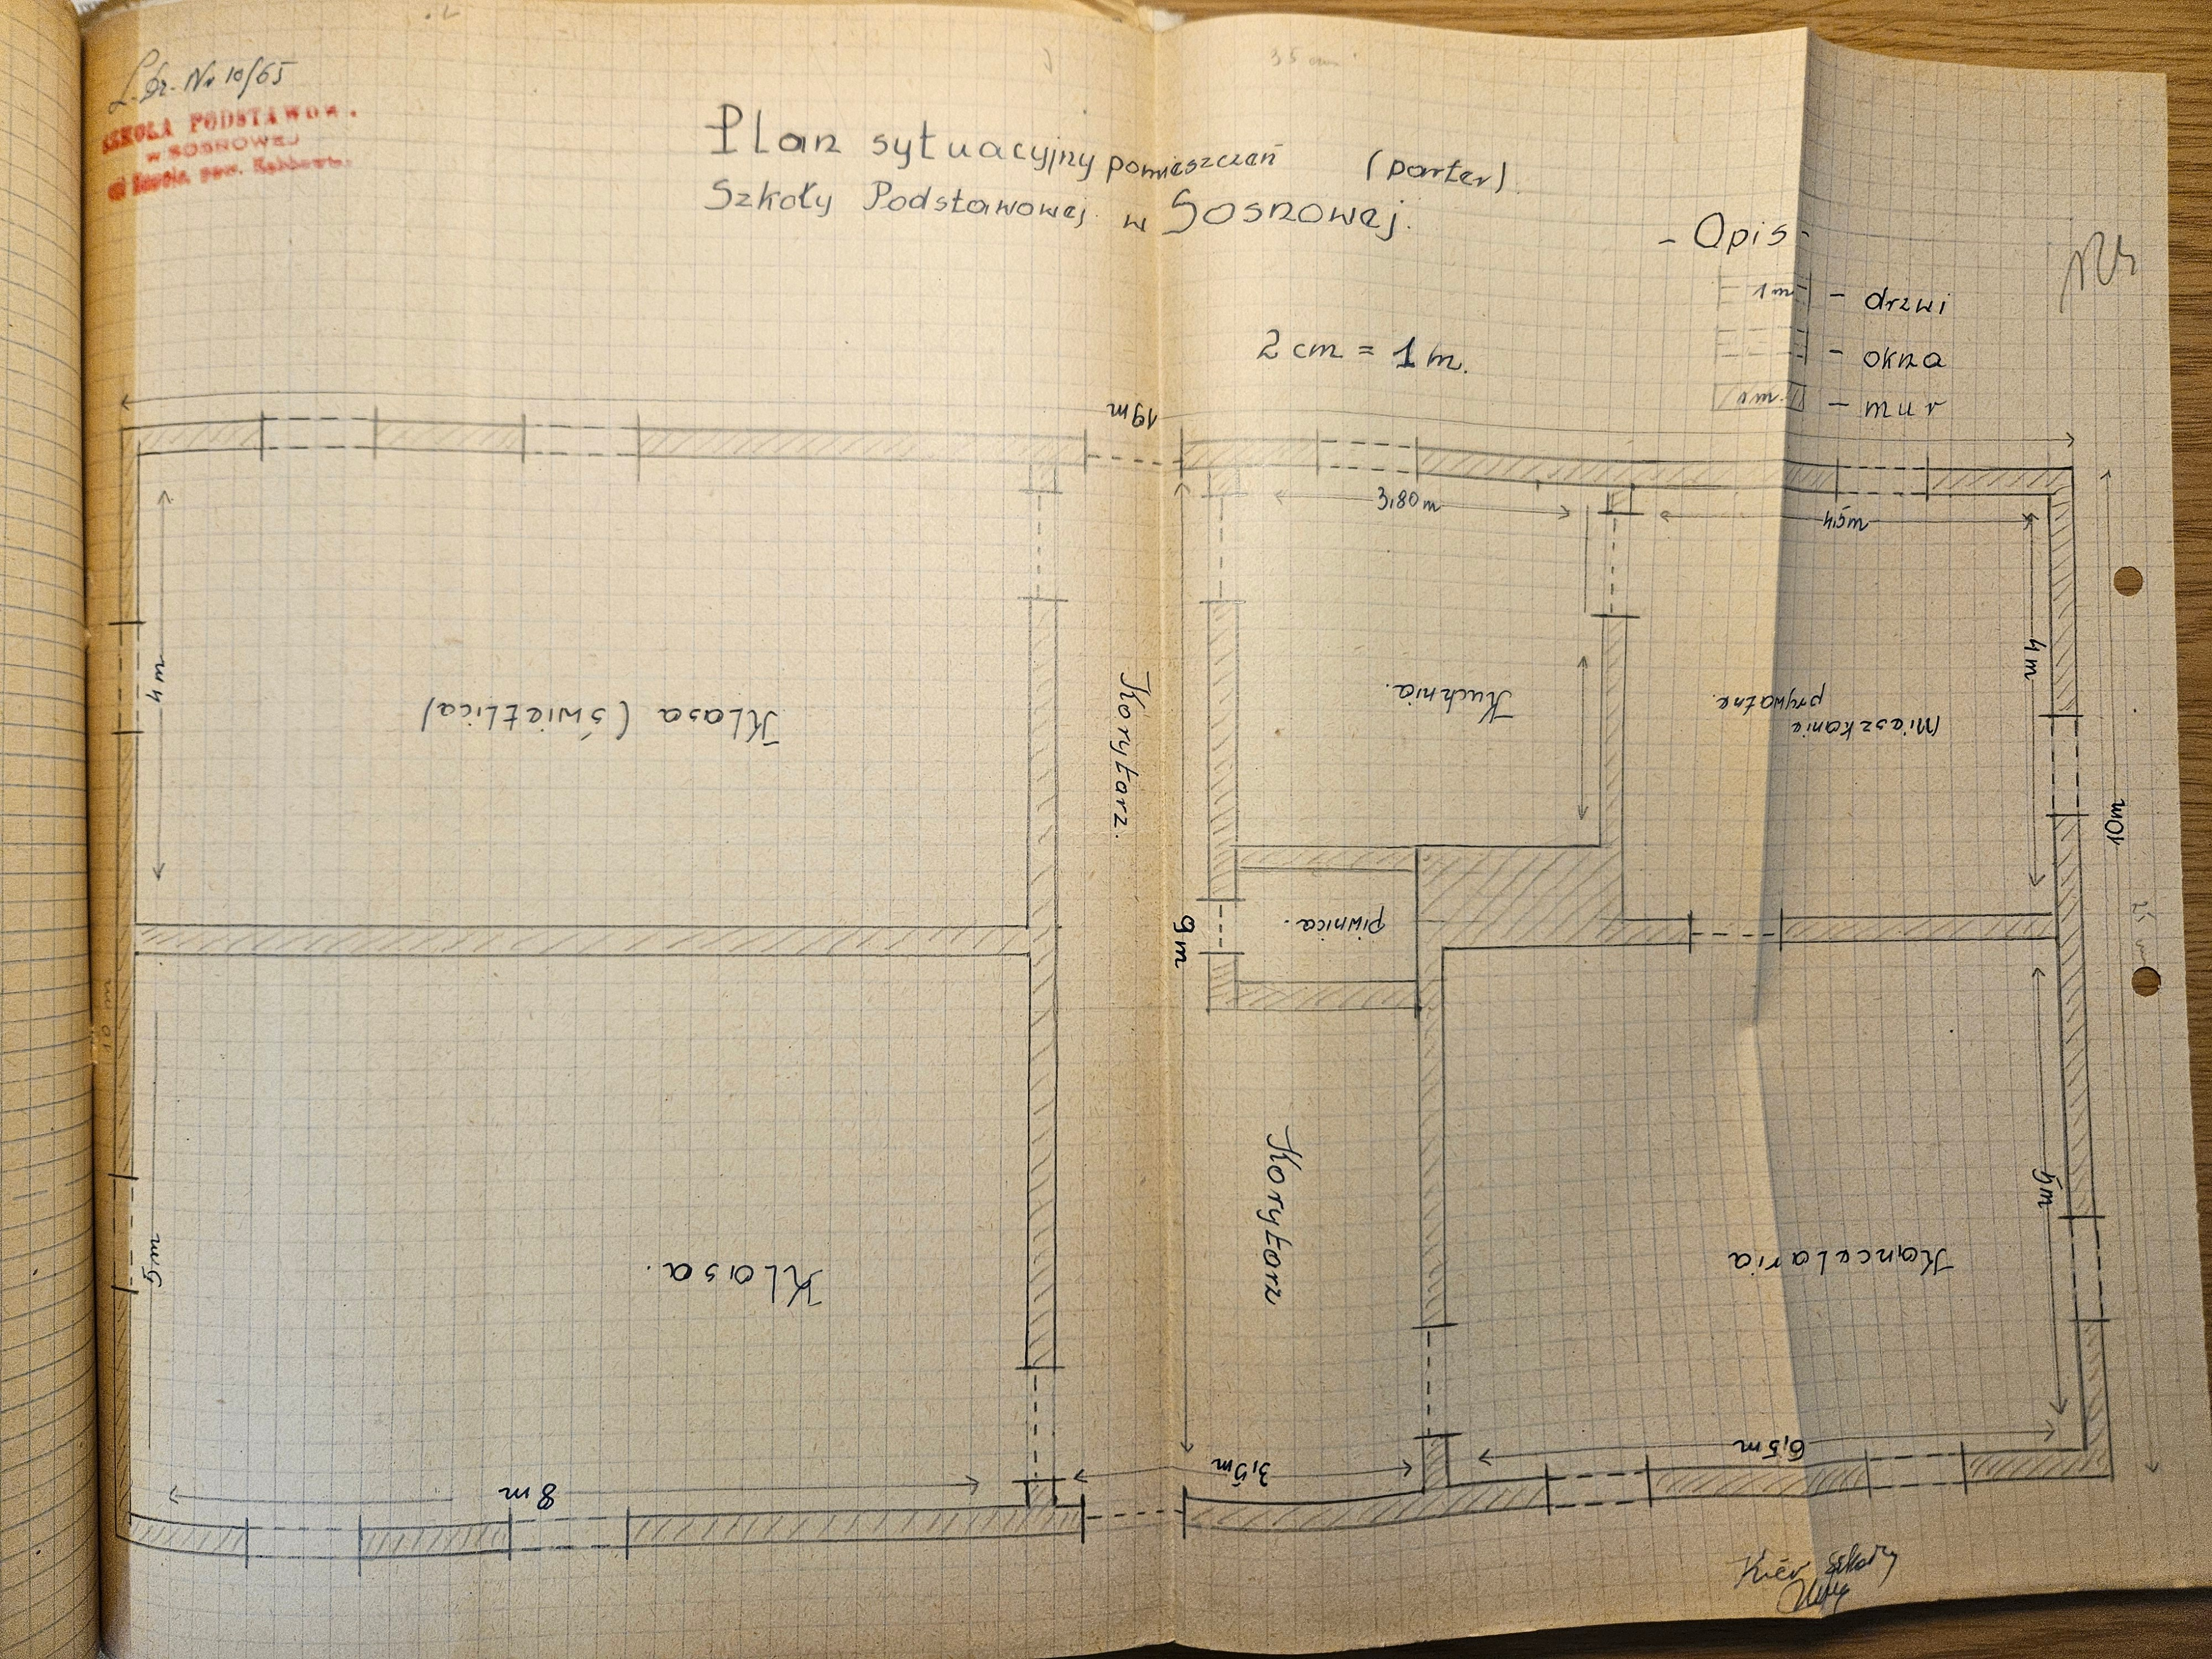 L. Dz. Nr 10/65
SZKOŁA PODSTAWOW.
w SOSNOWEJ
Plan sytuacyjny pomieszczeń (parter).
Szkoły Podstawowej w Sosnowej.
- Opis -
1 m - drzwi
- okna
- mur
2 cm = 1 m.
19m
3,80m
4,5m
4 m
4m
Klasa (świetlica)
Korytarz.
Kuchnia.
Mieszkanie
prywatne.
10m
piwnica.
9m
10 m
5m
5m
Klasa.
Korytarz
Kancelaria
8 m
3,5m
6,5m
Kier szkoły